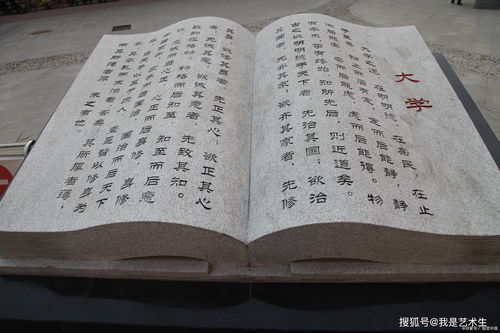 大学
大学之道，在明明德，在亲民，在止
于至善。知止而后有定，定而后能静，静
而后能安，安而后能虑，虑而后能得。物
有本末，事有终始，知所先后，则近道矣。
古之欲明明德于天下者，先治其国；欲治
其国者，先齐其家；欲齐其家者，先修
其身；欲修其身者，先正其心；欲正其心
者，先诚其意；欲诚其意者，先致其知。
致知在格物，物格而后知至，知至而后意
诚，意诚而后心正，心正而后身修，身修
而后家齐，家齐而后国治，国治而后天下
平。自天子以至于庶人，壹是皆以修身为
本。其本乱而末治者否矣。其所厚者薄，
而其所薄者厚，未之有也
搜狐号@我是艺术生